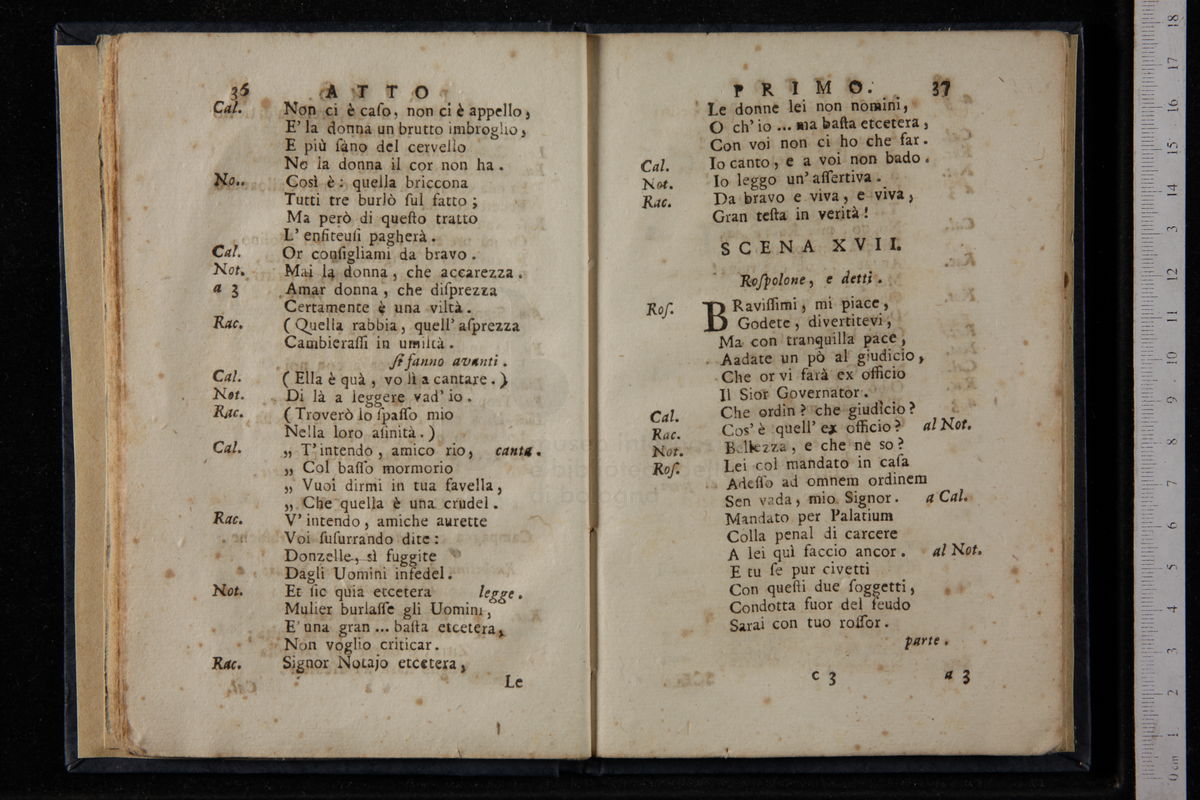 36 ATTO
Cal. Non ci è caſo, non ci è appello,
E' la donna un brutto imbroglio,
E più ſano del cervello
No la donna il cor non ha.
No.. Così è: quella briccona
Tutti tre burlò ſul fatto;
Ma però di queſto tratto
L' enfiteuſi pagherà.
Cal. Or conſigliami da bravo.
Not. Mai la donna, che accarezza.
a 3 Amar donna, che diſprezza
Certamente è una viltà.
Rac. (Quella rabbia, quell' aſprezza
Cambieraſſi in umiltà.
ſi fanno avanti.
Cal. (Ella è quà, vo lì a cantare.)
Not. Di là a leggere vad' io.
Rac. (Troverò lo ſpaſſo mio
Nella loro aſinità.)
Cal. „ T' intendo, amico rio, canta.
„ Col baſſo mormorio
„ Vuoi dirmi in tua favella,
„ Che quella è una crudel.
Rac. V' intendo, amiche aurette
Voi ſuſurrando dite:
Donzelle, sì fuggite
Dagli Uomini infedel.
Not. Et ſic quia etcetera legge.
Mulier burlaſſe gli Uomini,
E' una gran ... baſta etcetera,
Non voglio criticar.
Rac. Signor Notajo etcetera,
Le
PRIMO. 37
Le donne lei non nomini,
O ch' io ... ma baſta etcetera,
Con voi non ci ho che far.
Cal. Io canto, e a voi non bado.
Not. Io leggo un' aſſertiva.
Rac. Da bravo e viva, e viva,
Gran teſta in verità!
SCENA XVII.
Roſpolone, e detti.
Roſ. BRaviſſimi, mi piace,
Godete, divertitevi,
Ma con tranquilla pace,
Aadate un pò al giudicio,
Che or vi farà ex officio
Il Sior Governator.
Cal. Che ordin? che giudicio?
Rac. Cos' è quell' ex officio? al Not.
Not. Bellezza, e che ne so?
Roſ. Lei col mandato in caſa
Adeſſo ad omnem ordinem
Sen vada, mio Signor. a Cal.
Mandato per Palatium
Colla penal di carcere
A lei quì faccio ancor. al Not.
E tu ſe pur civetti
Con queſti due ſoggetti,
Condotta fuor del feudo
Sarai con tuo roſſor.
parte.
c 3 a 3